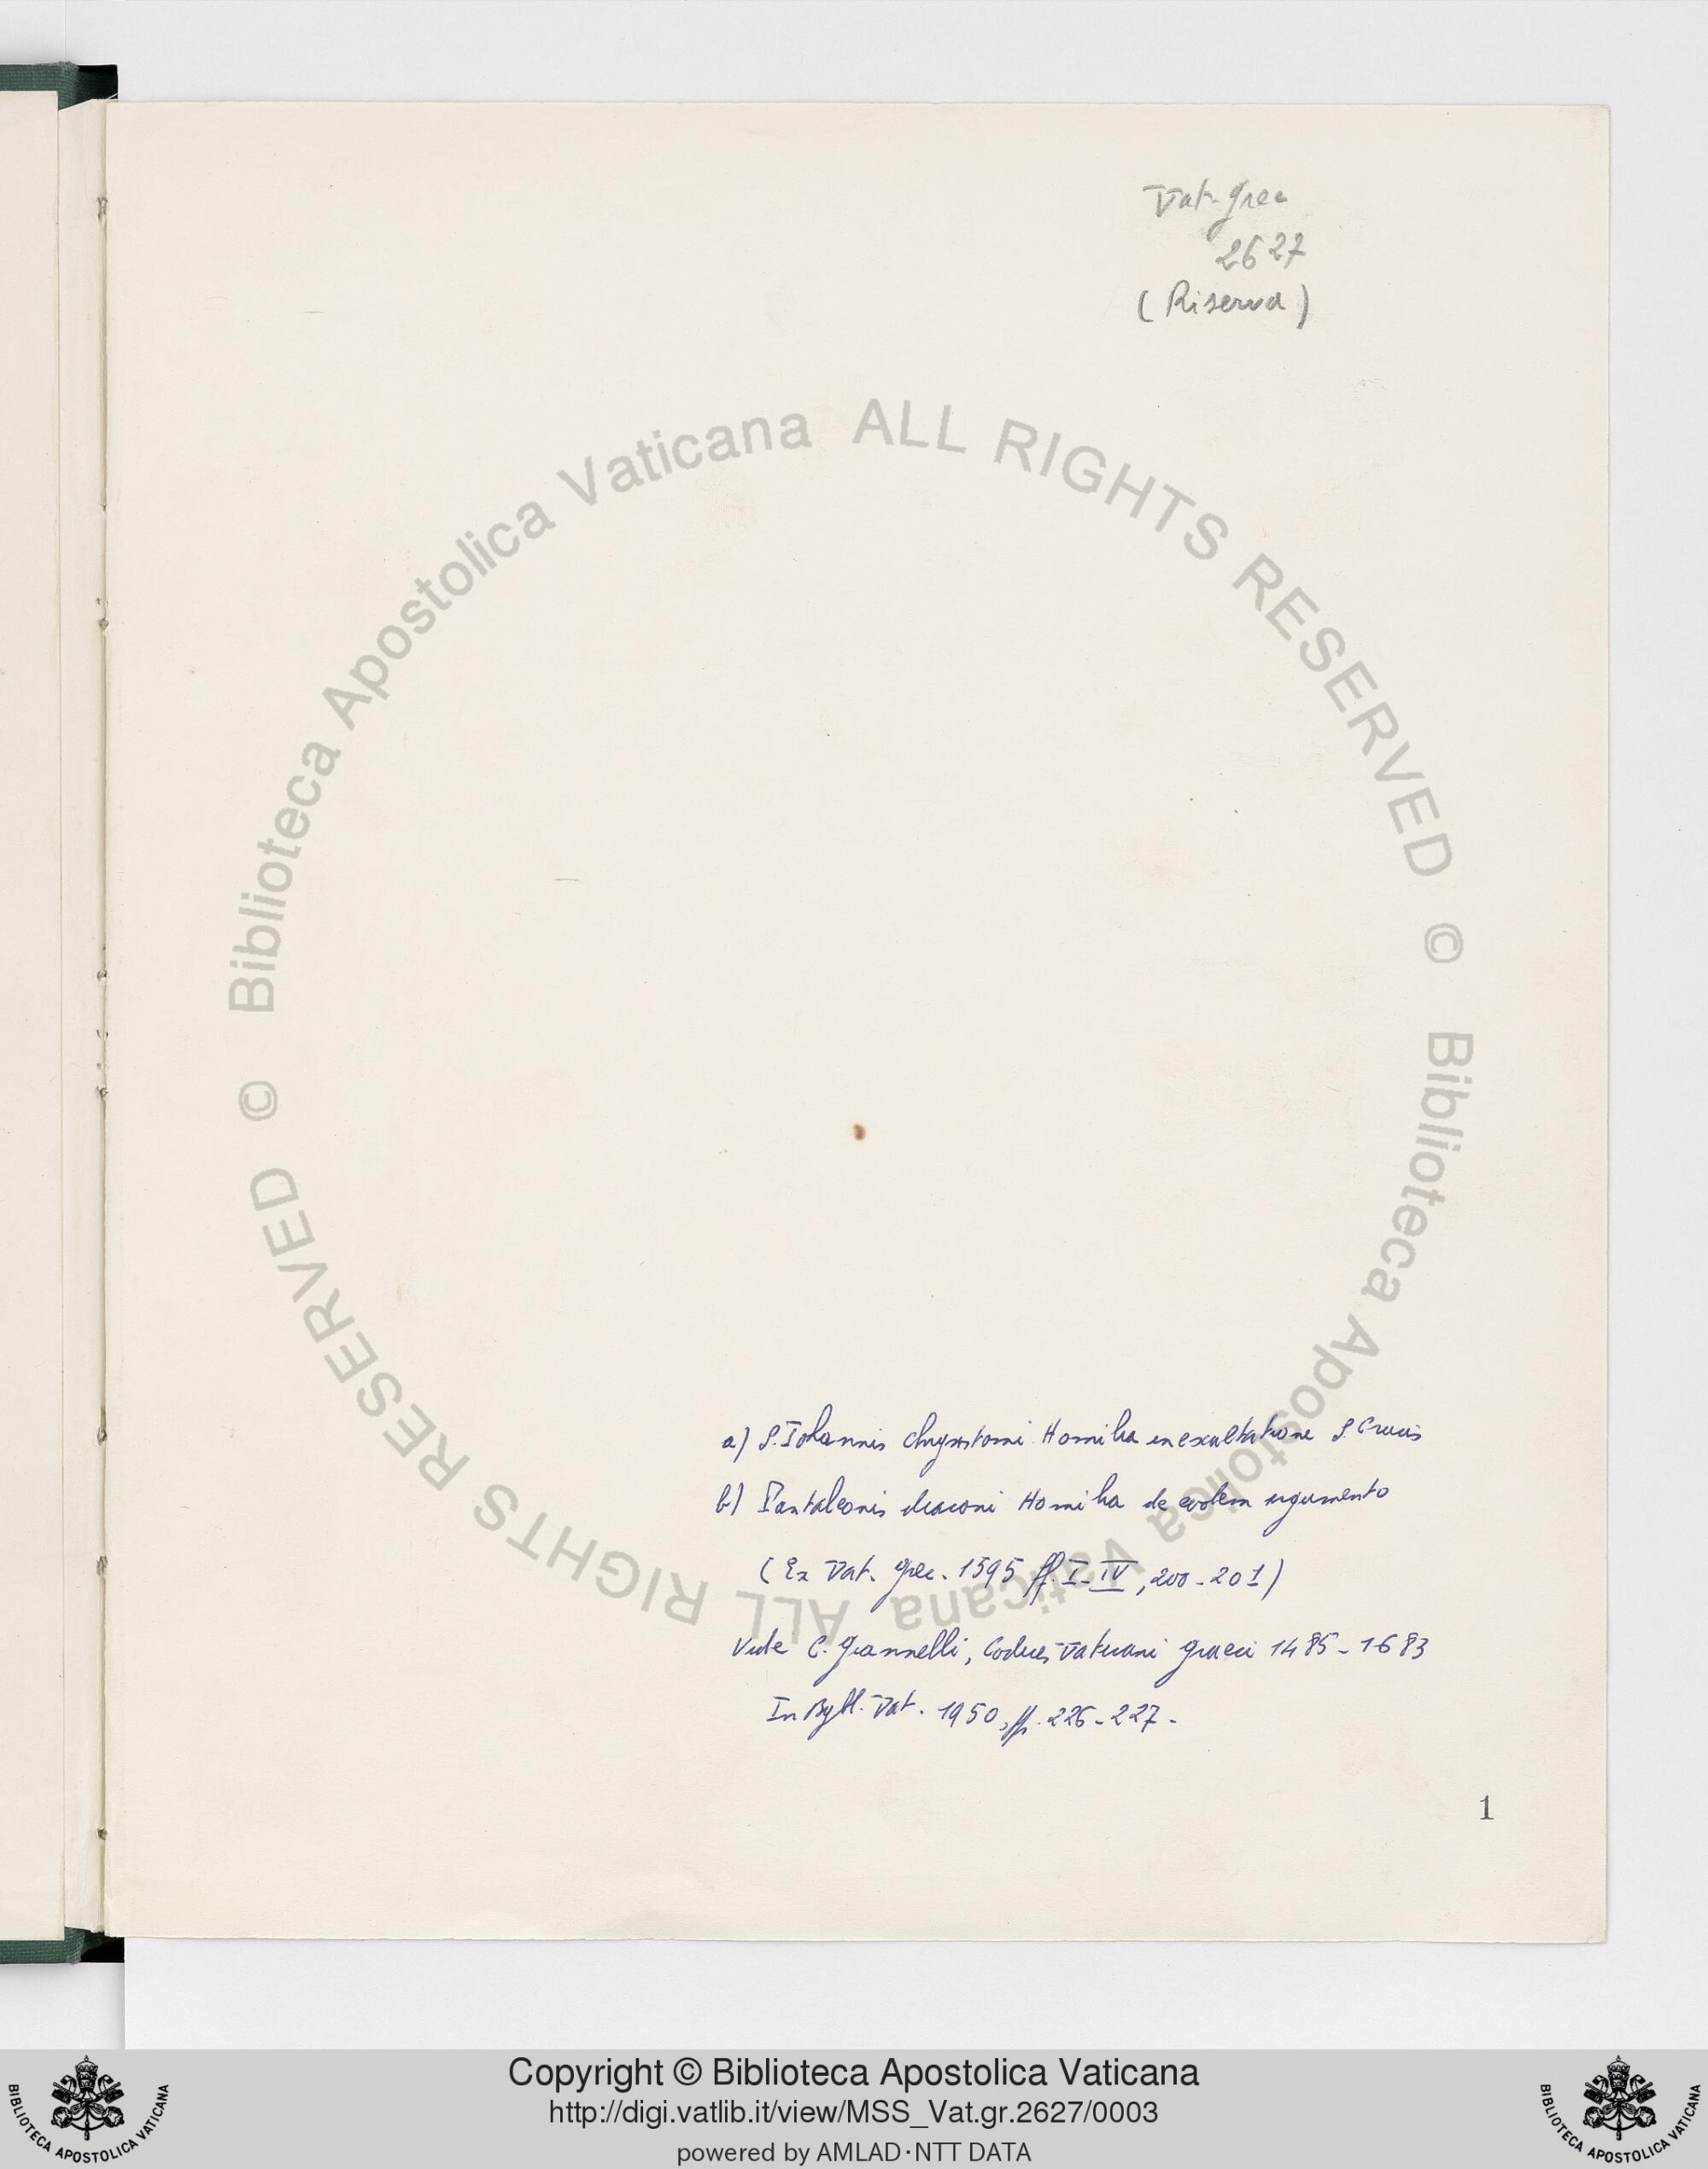 Vat. grec
2627
(Riserva)
a) S. Iohannis Chrysostomi Homilia in exaltatione S. Crucis
b) Pantaleonis diaconi Homilia de eodem argumento
(Ex Vat. grec. 1595 ff. I-IV, 200-201)
Vide C. Giannelli, Codices Vaticani graeci 1485-1683
In Bybl. Vat. 1950, pp. 226-227-
1
© Biblioteca Apostolica Vaticana ALL RIGHTS RESERVED
© Biblioteca Apostolica Vaticana ALL RIGHTS RESERVED
Copyright © Biblioteca Apostolica Vaticana
http://digi.vatlib.it/view/MSS_Vat.gr.2627/0003
powered by AMLAD·NTT DATA
BIBLIOTECA APOSTOLICA VATICANA
BIBLIOTECA APOSTOLICA VATICANA